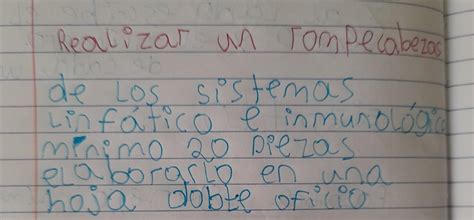 Realizar un rompecabezas
de Los sistemas
Linfático e inmunológico
mínimo 20 piezas
elaborarlo en una
hoja doble oficio